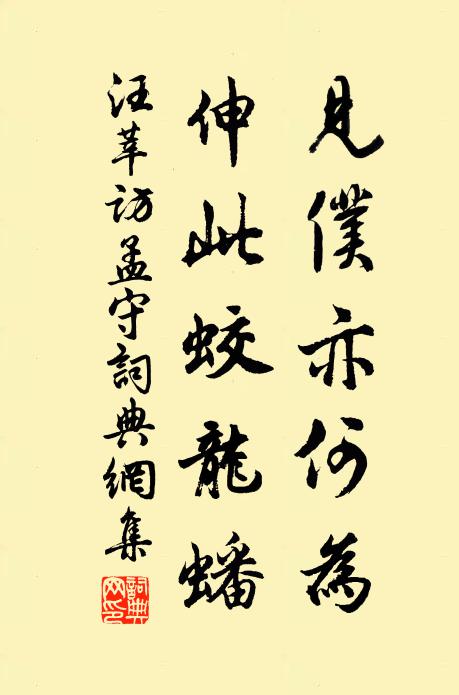 見僕亦何為
伸此蛟龍蟠
汪莘訪孟守詞典網集
詞典網印